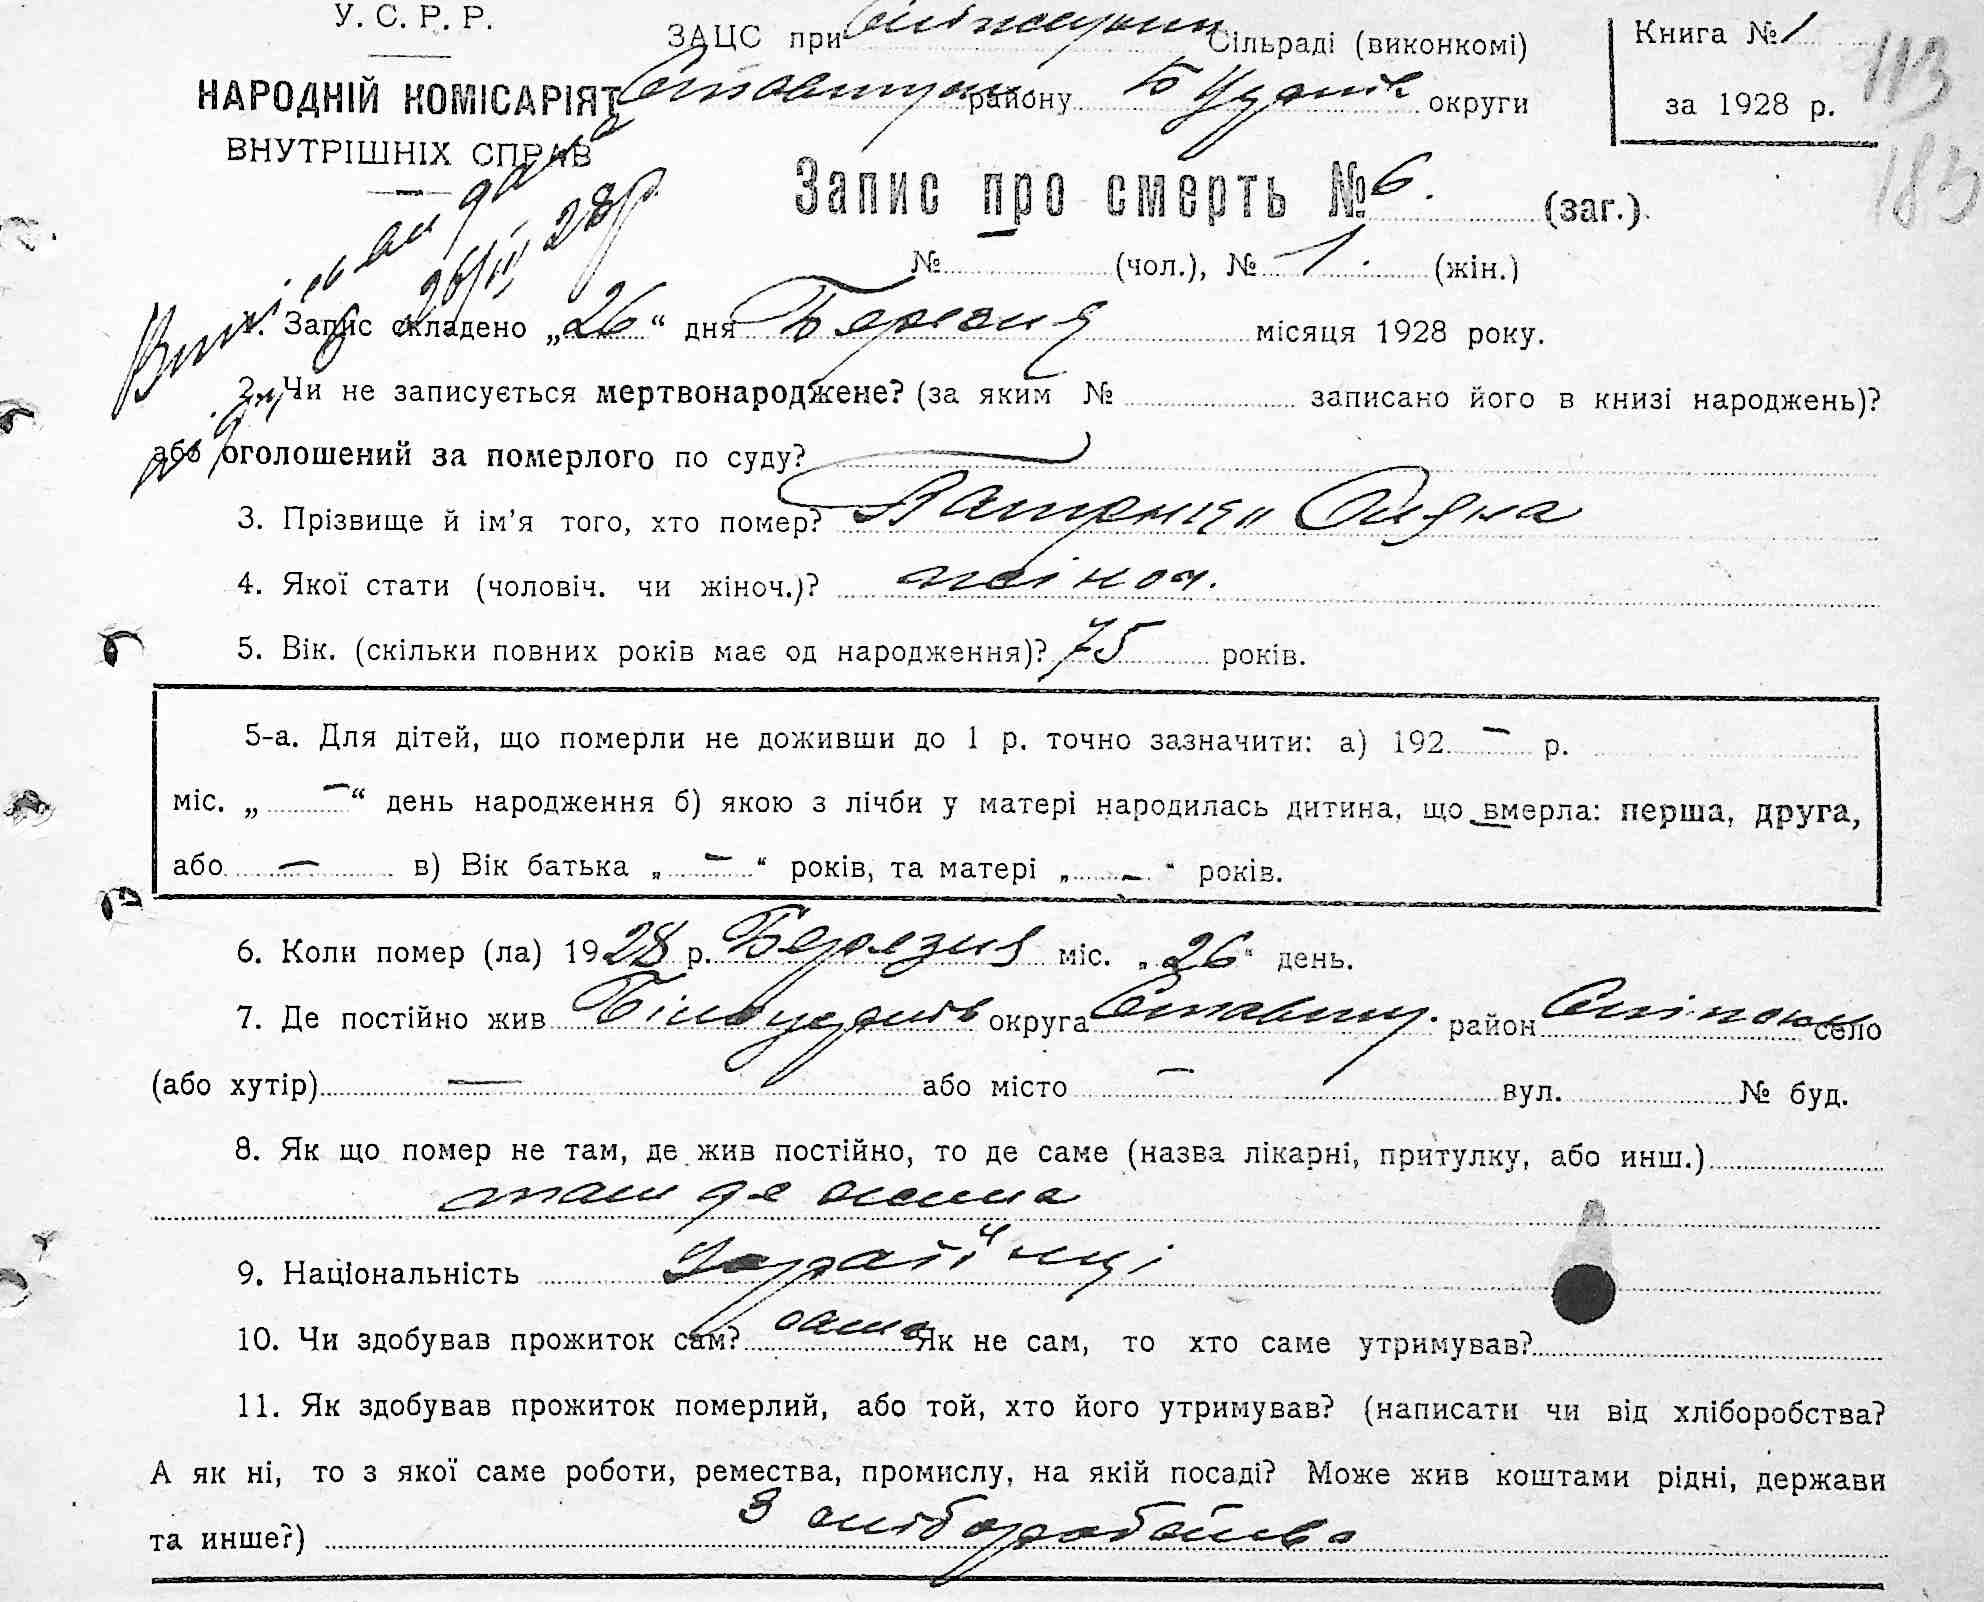 У. С. Р. Р.
НАРОДНІЙ КОМІСАРІЯТ
ВНУТРІШНІХ СПРАВ
ЗАЦС при Сільраді (виконкомі)
району Б Цурків округи
Книга № 1
за 1928 р.
113
183
Запис про смерть № 6. (заг.).
№ (чол.), № 1. (жін.)
26/III 28р
1. Запис складено „26“ дня Березня місяця 1928 року.
2. Чи не записується мертвонароджене? (за яким № записано його в книзі народжень)?
або оголошений за померлого по суду?
3. Прізвище й ім’я того, хто помер?
4. Якої стати (чоловіч. чи жіноч.)? жіноч.
5. Вік. (скільки повних років має од народження)? 75 років.
5-а. Для дітей, що померли не доживши до 1 р. точно зазначити: а) 192 — р.
міс. „ — “ день народження б) якою з лічби у матері народилась дитина, що вмерла: перша, друга,
або — в) Вік батька „ — “ років, та матері „ — “ років.
6. Коли помер (ла) 1928 р. Березня міс. „26“ день.
7. Де постійно жив округа район село
(або хутір) — або місто — вул. № буд.
8. Як що помер не там, де жив постійно, то де саме (назва лікарні, притулку, або инш.)
там де жила
9. Національність
10. Чи здобував прожиток сам? сама Як не сам, то хто саме утримував?
11. Як здобував прожиток померлий, або той, хто його утримував? (написати чи від хліборобства?
А як ні, то з якої саме роботи, ремества, промислу, на якій посаді? Може жив коштами рідні, держави
та инше?) З хліборобства